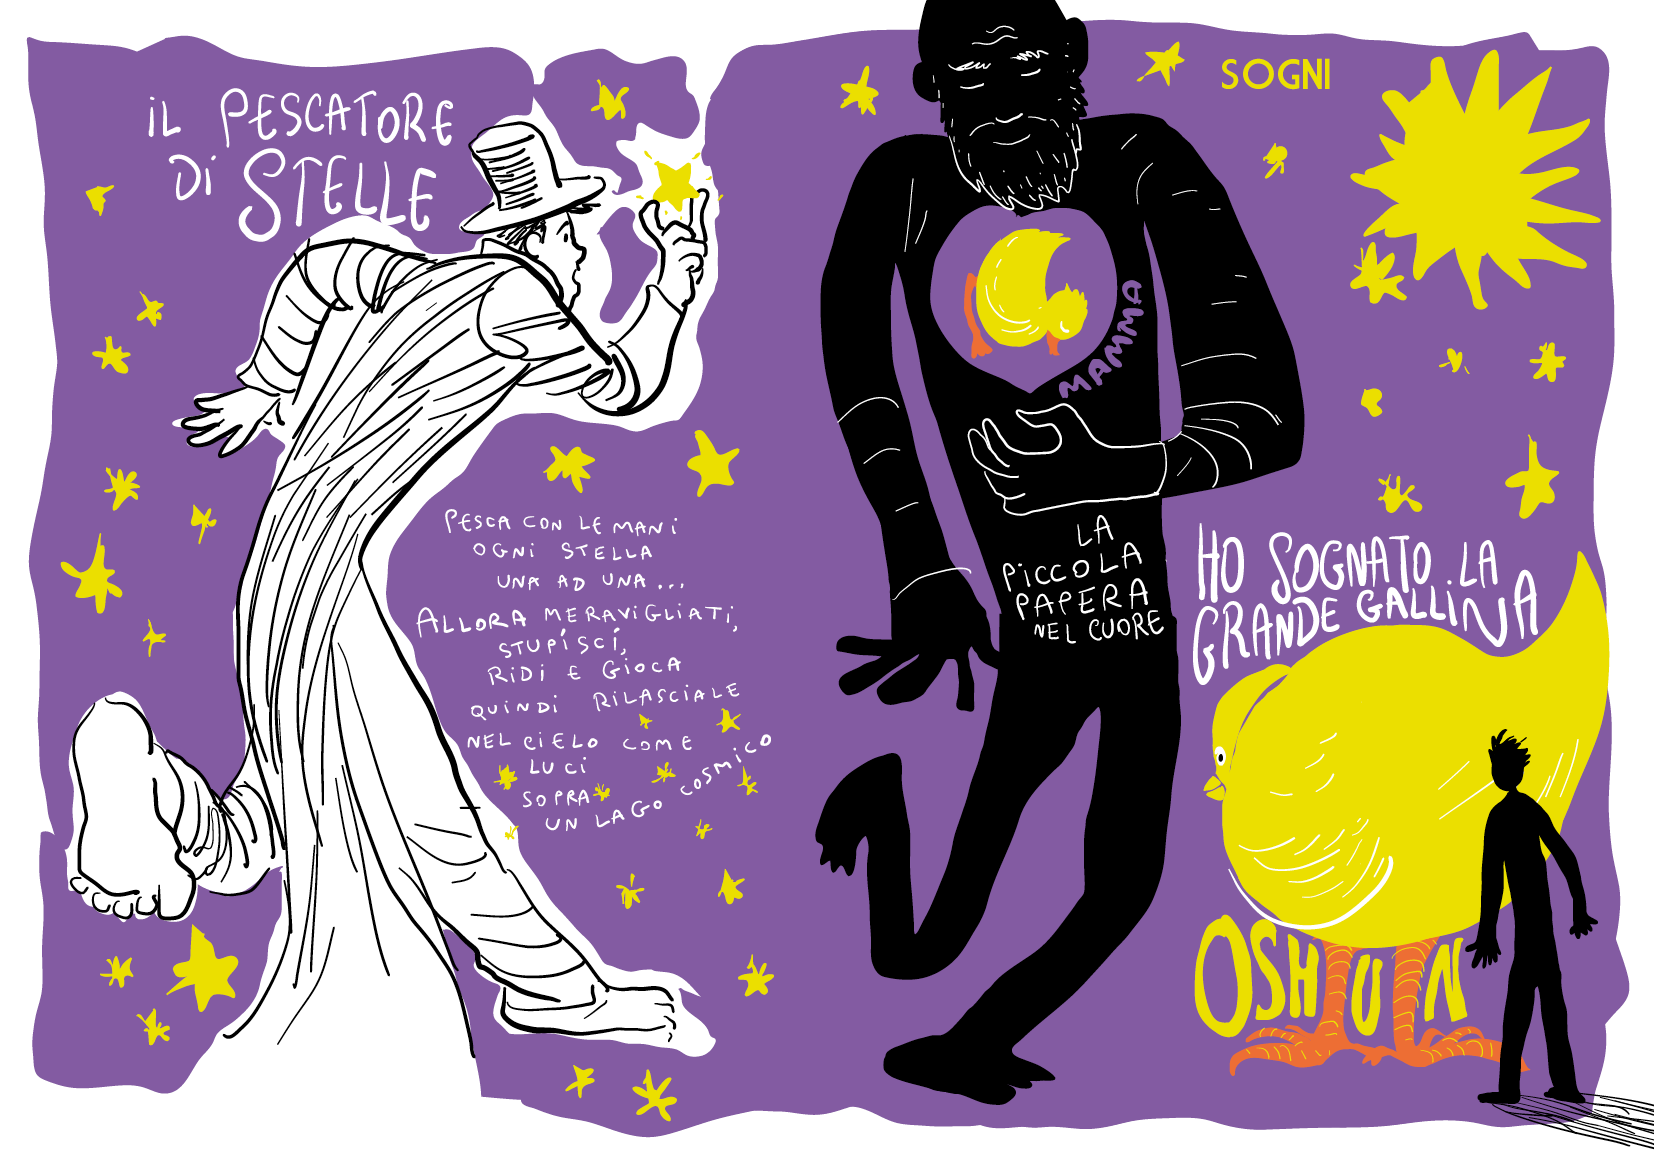 iL PESCATORE
Di STELLE
PESCA CON LE MANi
OGNi STELLA
UNA AD UNA...
ALLORA MERAVIGLIATi,
STUPÍSCÍ,
RiDi E GiOCA
QUiNDi RiLASCiALE
NEL CiELO COME
LUCi
SOPRA
UN LAGO COSMiCO
SOGNI
MAMMA
LA
PiCCOLA
PAPERA
NEL CUORE
HO SOGNATO LA
GRANDE GALLiNA
OSHUN